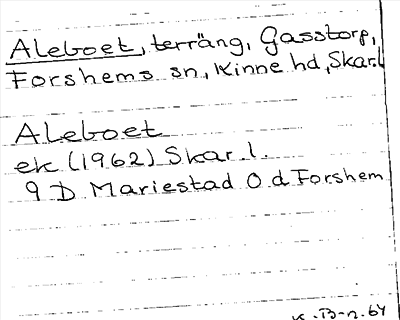 Aleboet, terräng, Gasstorp,
Forshems sn, Kinne hd, Skar.l
Aleboet
ek (1962) Skar.l.
9 D Mariestad O d Forshem